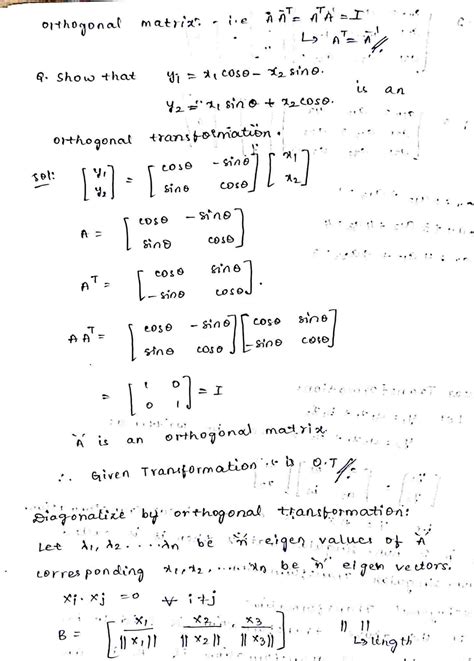 orthogonal matrix - i.e A A^T = A^T A = I
↳ A^T = A^-1 //
Q. Show that y₁ = x₁ cosθ - x₂ sinθ.
y₂ = x₁ sinθ + x₂ cosθ. is an
orthogonal transformation.
Sol: [y₁ y₂] = [cosθ -sinθ sinθ cosθ] [x₁ x₂]
A = [cosθ -sinθ sinθ cosθ]
A^T = [cosθ sinθ -sinθ cosθ].
AA^T = [cosθ -sinθ sinθ cosθ] [cosθ sinθ -sinθ cosθ]
= [1 0 0 1] = I
'A' is an orthogonal matrix
∴ Given Transformation is O.T //.
Diagonalize by orthogonal transformation:
Let λ₁, λ₂ .... λn be 'n' eigen values of 'A'
corresponding x₁, x₂, ..... xn be 'n' eigen vectors.
xi. xj = 0 ∀ i≠j
B = [x₁/||x₁|| x₂/||x₂|| x₃/||x₃||] || ||
↳ length